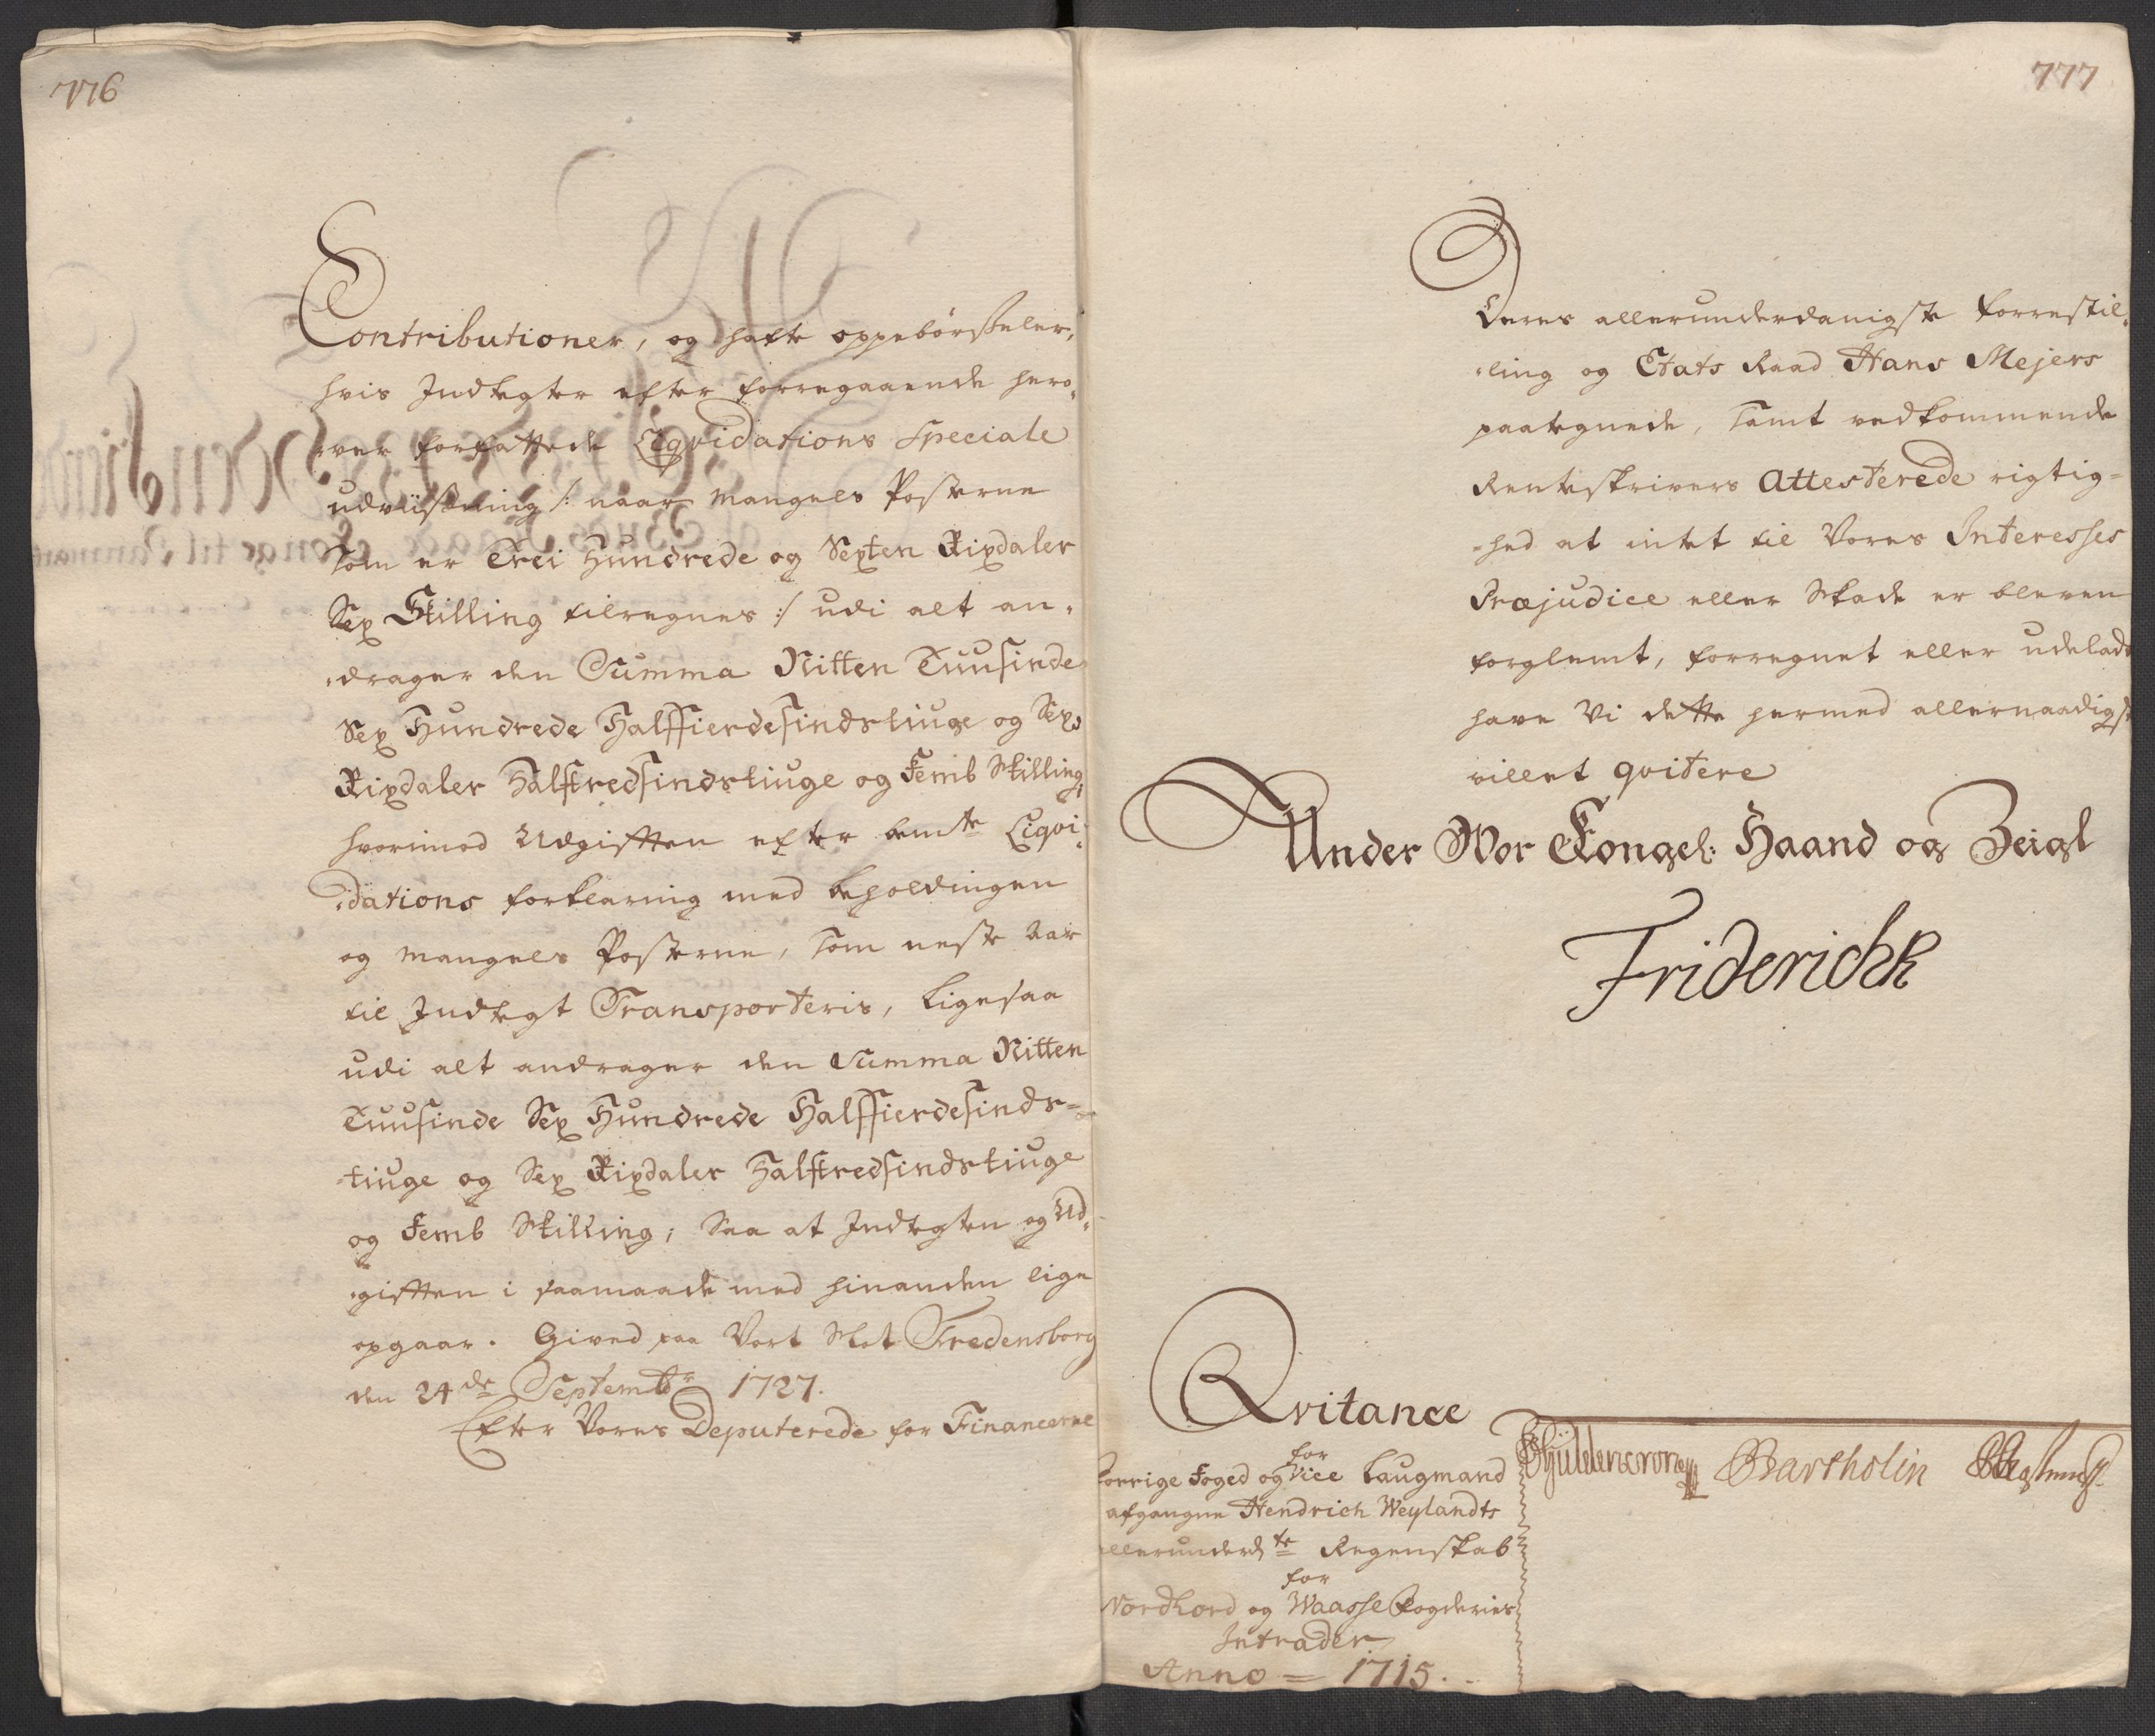 776
Contributioner, og hafte oppebørsseler,
hvis Indtegter efter forregaaende hero-
-ver forfattede Liqvidations Speciale
udviisning /: naar Mangels Posterne
som er Trei Hundrede og Sexten Rixdaler
Sex Skilling tilregnes :/ udi alt an-
-drager den Summa Nitten Tuusinde
Sex Hundrede Halffierdesindstiuge og Sex
Rixdaler Halftredsindstiuge og Femb Skilling,
hvorimod Udgifften efter bemte Liqvi-
-dations forklaring med beholdingen
og Mangels Posterne, som neste Aar
til Indtegt Transporteris, ligesaa
udi alt andrager den Summa Nitten
Tuusinde Sex Hundrede Halffierdesinds-
-tiuge og Sex Rixdaler Halftredsindstiuge
og Femb Skilling; Saa at Indtegten og Ud-
-gifften i saamaade med hinanden lige
opgaar. Gived paa Vort Slot Fredensborg
den 24de Septembr 1727.
Efter Vores Deputerede for Financerne
777
Deres allerunderdanigste forrestil-
-ling og Etats Raad Hans Mejers
paategnede, samt vedkommende
Renteskrivers Attesterede rigtig-
-hed at intet til Vores Interesses
Præjudice eller Skade er bleven
forglemt, forregnet eller udeladt
have Vi dette hermed allernaadigst
villet qvitere
Under Vor Kongel: Haand og Zeigl
Friderich R
Qvitance
for
forrige Foged og Vice Laugmand
afgangne Hendrich Weylandts
allerunderdte Regenskab
for
Nordhord og Waasse Fogderies
Intrader
Anno = 1715.
Gyldencrone Bartholin